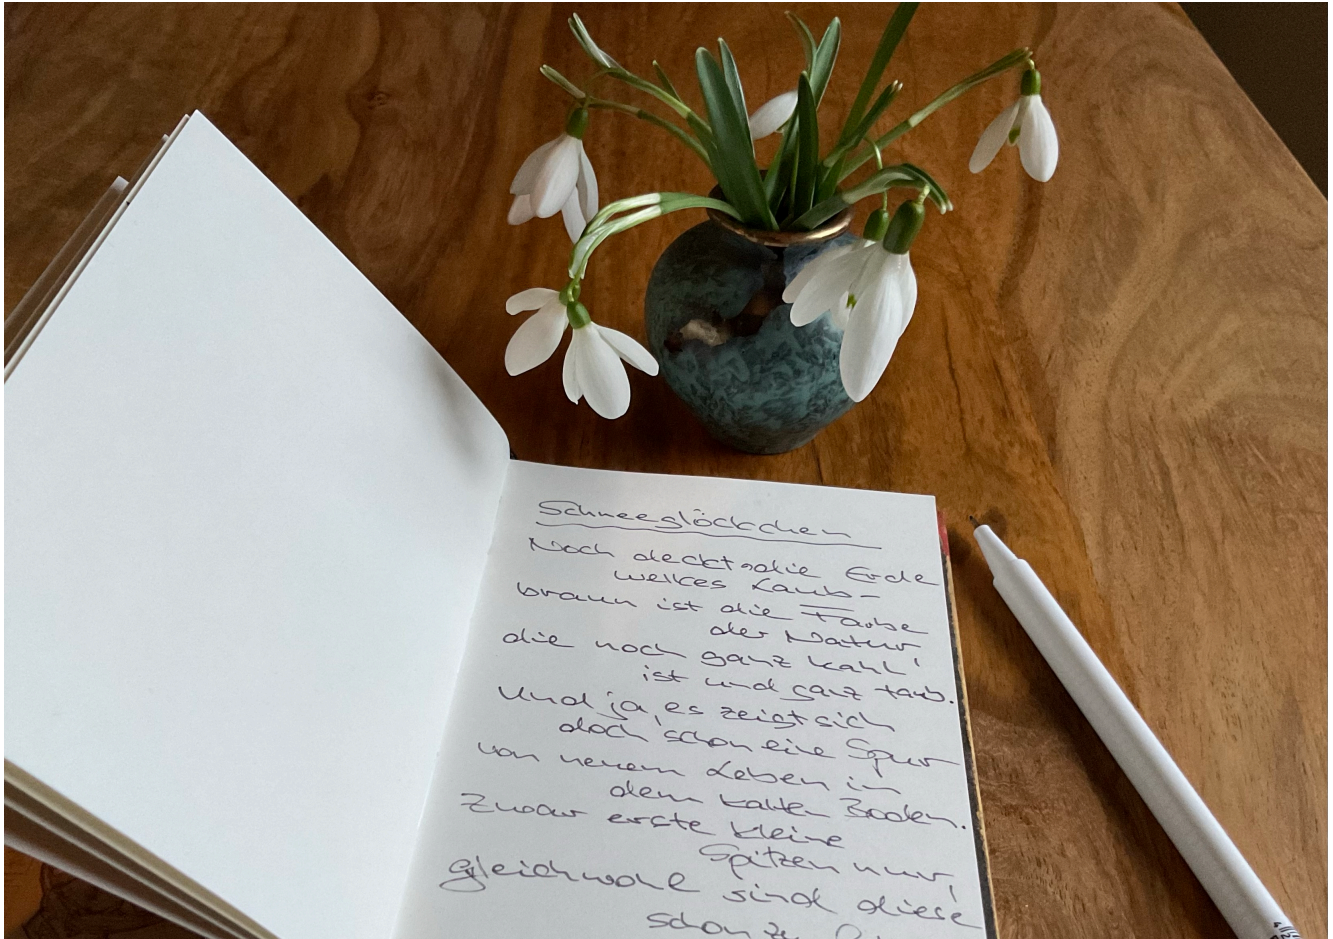 Schneeglöckchen
Noch deckt die Erde
welkes Laub –
braun ist die Farbe
der Natur,
die noch ganz kahl
ist und ganz taub.
Und ja, es zeigt sich
doch schon eine Spur
von neuem Leben in
dem kalten Boden.
Zwar erste kleine
Spitzen nur,
gleichwohl sind diese
schon zu